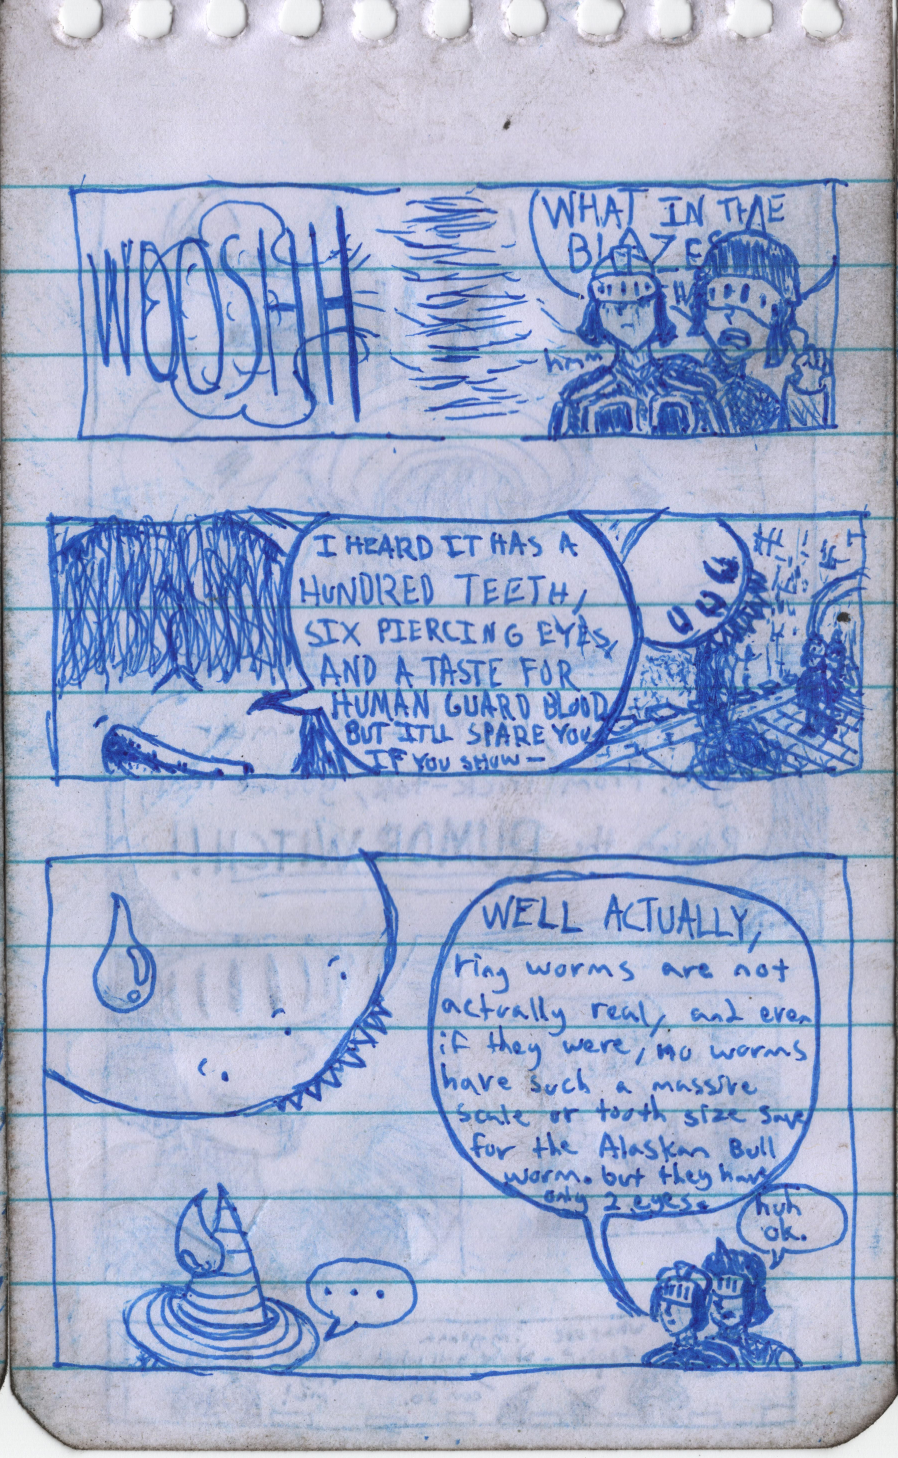 WOOSHH
WHAT IN THE
BLAZES
hmm
I HEARD IT HAS A
HUNDRED TEETH,
SIX PIERCING EYES,
AND A TASTE FOR
HUMAN GUARD BLOOD
BUT IT'LL SPARE YOU
IF YOU SHOW—
WELL ACTUALLY,
ring worms are not
actually real, and even
if they were, no worms
have such a massive
scale or tooth size save
for the Alaskan Bull
worm. but they have
only 2 eyes.
huh
ok.
...